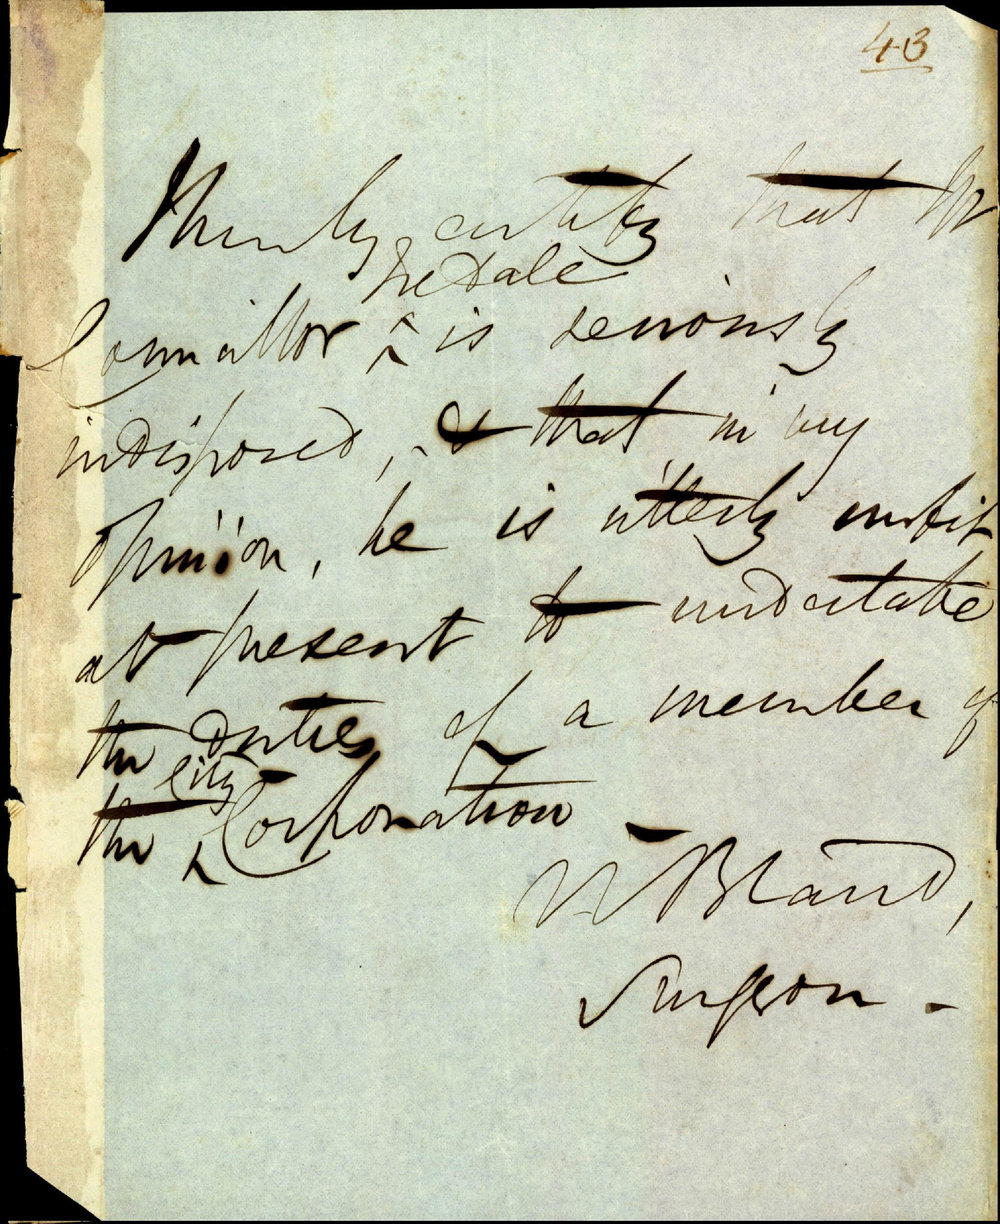 43
I hereby certify that Mr
Iredale
Councillor ^ is seriously
indisposed, & that in my
opinion, he is utterly unfit
at present to undertake
the duties of a member of
City
the ^ Corporation
W Bland,
Surgeon -